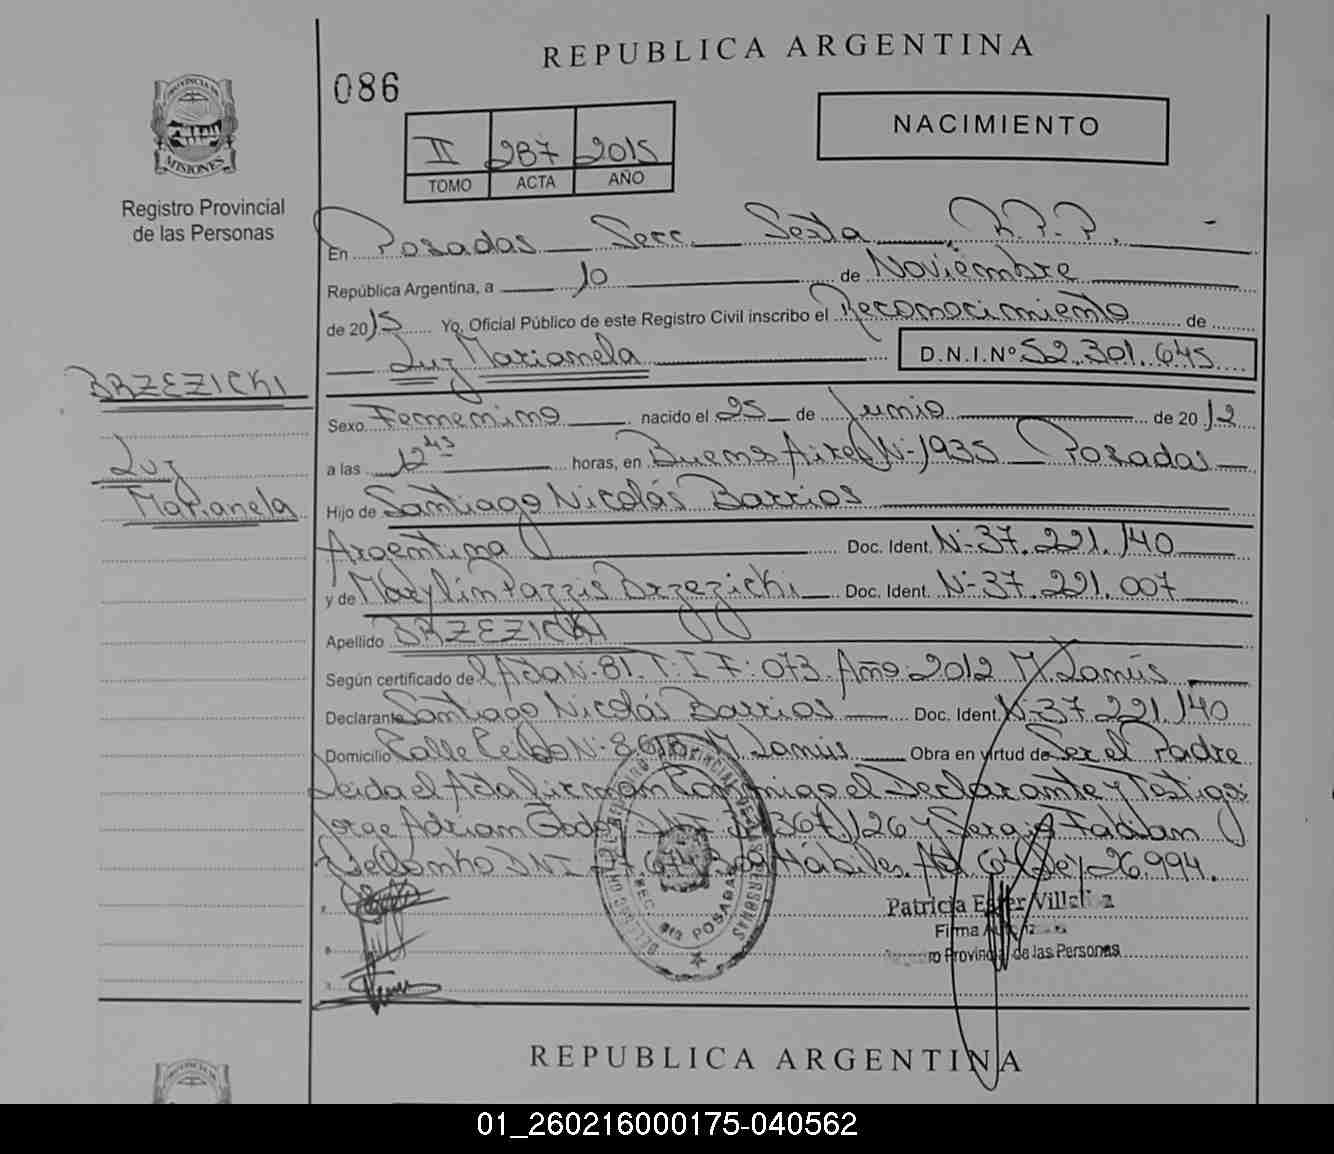 REPUBLICA ARGENTINA
086
NACIMIENTO
II 287 2015
TOMO ACTA AÑO
PROVINCIA DE
MISIONES
Registro Provincial
de las Personas
En Posadas Secc. Sexta R.P.P. -
República Argentina, a 10 de Noviembre
de 2015 Yo, Oficial Público de este Registro Civil inscribo el Reconocimiento de
Luz Marianela D.N.I.Nº 52.301.645
BRZEZICKI
Luz
Marianela
Sexo Femenino nacido el 25 de Junio de 2012
a las 12 45 horas, en Buenos Aires Nº 1935 Posadas
Hijo de Santiago Nicolás Barrios
Argentina Doc. Ident. Nº 37.221.140
y de Marylin Pazzis Brzezicki Doc. Ident. Nº 37.221.007
Apellido BRZEZICKI
Según certificado del Acta Nº 81. T: I F: 073. Año: 2012 M. Lanús
Declarante Santiago Nicolás Barrios Doc. Ident. Nº 37.221.140
Domicilio Calle Nº M. Lanús Obra en virtud de Ser el Padre
Leida el Acta firman Conmigo el Declarante y Testigos
Jorge Adrian Godoy DNI 367.126 y Sergio Fabian
DNI Hábiles. Ley 26.994.
Patricia Ester
Firma
Provincial de las Personas
REGISTRO PROVINCIAL DE LAS PERSONAS
SEC. 6ta POSADAS
REPUBLICA ARGENTINA
01_260216000175-040562